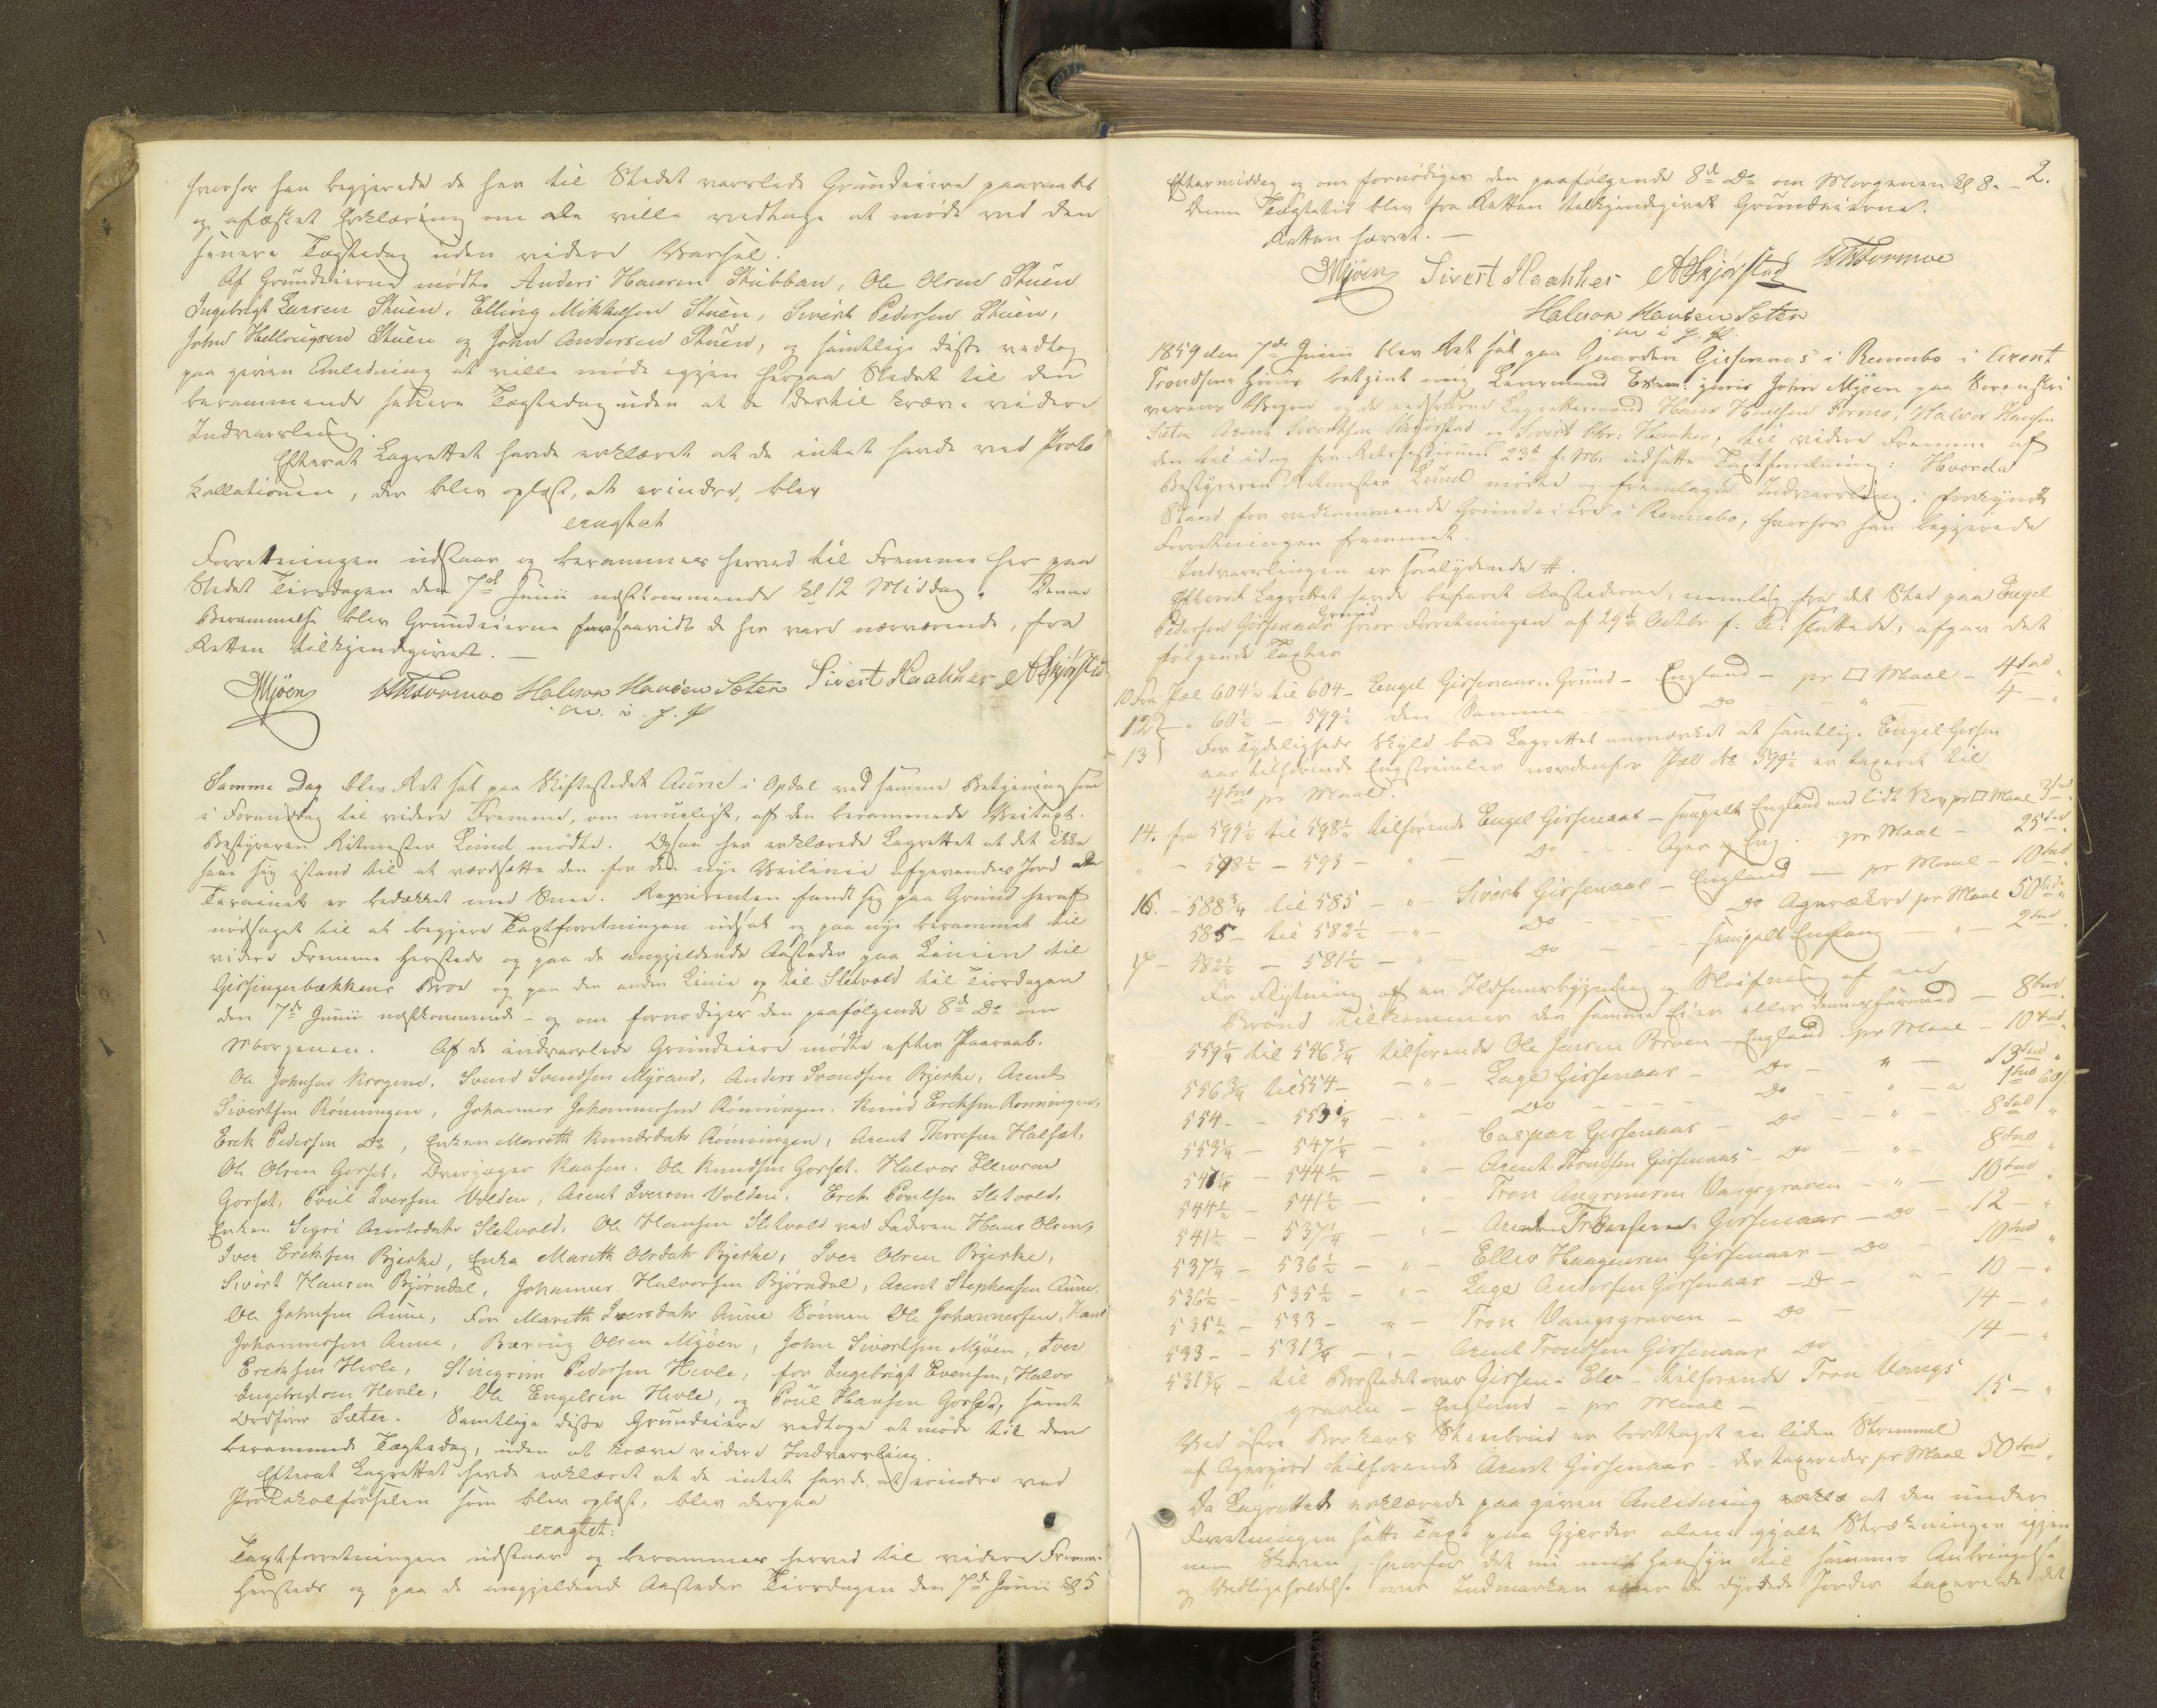 hvorfor han begjærede de her til Stedet varslede Grundeiere paaraabt
og afæsket Erklæring om de ville vedtage at møde ved den
senere Tægtedag uden videre Varsel.
Af Grundeierne mødte Anders Hansen Stubban, Ole Olsen Stuen
Ingebrigt Larsen Stuen, Elling Mikkelsen Stuen, Sivert Pedersen Stuen,
John Hellougsen Stuen og John Andersen Stuen, og samtlige disse vedtog
paa given Anledning at ville møde igjen herpaa Stedet til den
berammende senere Tægtedag uden at de dertil kræve videre
Indvarsling.
Efterat Lagrettet havde erklæret at de intet havde ved Proto
kollationen, der blev oplæst, at erindre, blev
eragtet
Forretningen udstaar og berammes herved til Fremme her paa
Stedet Tirsdagen den 7de Junii næstkommende Kl 12 Middag. Denne
Berammelse blev Grundeierne forsaavidt de her vare nærværende, fra
Retten tilkjendegivet. —
Mjöen Halvor Hansen Sæter Sivert Haakker ASkjørstad
m. i. f. P
Samme Dag blev Ret sat paa Skiftestedet Aune i Opdal ved samme Betjening som
i Formiddag til videre Fremme, om mueligt, af den berammede Veitaxt.
Bestyreren Ritmester Lund mødte. Ogsaa her erklærede Lagrettet at det ikke
saae sig istand til at værdsætte den for den nye Veilinie afgivendes Jord da
Terrainet er bedækket med Snee. Reqvirenten fandt sig paa Grund heraf
nødsaget til at begjere Taxtforretningen udsat og paa nye berammet til
videre Fremme hersteds og paa de angjeldende Aasteder paa Linien til
Gissingerbækkens Broe og paa den anden Linie op til Sletvold til Tirsdagen
den 7de Junii næstkommende – og om fornødiges den paafølgende 8de Do om
Morgenen. Af de indvarslede Grundeiere mødte efter Paaraab.
Ole Johnsen Krogene, Svend Svendsen Myran, Anders Svendsen Bjerke, Arent
Sivertsen Rönningen, Johannes Johannessen Rönningen, Knud Ericksen Rönningen,
Erik Pedersen Do, Enken Marith Knudsdatr Rönningen, Arent Thoresen Halset,
Ole Olsen Gorset, Ole Knudsen Gorset, Halvor Ellevsen
Gorset, Poul Iversen Volden, Arent Iversen Volden, Erik Poulsen Sletvold,
Enken Sigri Arentsdatr Sletvold, Ole Hansen Sletvold ved Faderen Hans Olsen,
Iver Ericksen Bjerke, Enke Marith Olsdatr Bjerke, Iver Olsen Bjerke,
Sivert Hansen Björndal, Johannes Halvorsen Björndal, Arent Stephensen Aune,
Ole Johnsen Aune, For Marith Iversdatr Aune Sönnen Ole Johannessen, Hans
Johannessen Aune, Olsen Mjöen, John Sivertsen Mjöen, Iver
Ericksen Hevle, Pedersen Hevle, for Ingebrigt Evensen, Halvor
Ingebrigtsen Hevle, Ole Engelsen Hevle, og Poul Hansen Gorset, samt
Ordfører Sæter. Samtlige disse Grundeiere vedtoge at møde til den
berammede Tægtedag, uden at kræve videre Indvarsling.
Efterat Lagrettet havde erklæret at de intet havde at erindre ved
Protokolførselen som blev oplæst, blev derpaa
eragtet:
Taxtforretningen udstaar og berammes herved til videre Fremme
hersteds og paa de angjeldende Aasteder Tirsdagen den 7de Junii Kl 5
2.
Eftermiddag og om fornødiges den paafølgende 8de Do om Morgenen Kl 8. –
Denne Tægtetid blev fra Retten tilkjendegivet Grundeierne.
Retten hævet. —
Mjöen Sivert Haakker ASkjørstad
Halvor Hansen Sæter
m i f. P
1859 den 7de Junii blev Ret sat paa Gaarden Gissenaas i Rennebo i Arent
Trondsens Huus betjent mig Lensmand Exam. juris John Mjöen paa Sorenskri
verens Vegne og de edsvorne Lagrettesmænd Hans Formo, Halvor Hansen
Sæter Arent Sivertsen Skjørstad og Sivert Haaker, til videre Fremme af
den til idag fra Retssessionen 23de f. M. udsatte Taxtforretning: Hvorda
Bestyreren Ritmester Lund mødte og fremlagde Indvarsling i forkyndt
Stand for vedkommende Grundeiere i Rennebo, hvorfor han begjærede
Forretningen fremmet.
Indvarslingen er saalydende #.
Efterat Lagrettet havde befaret Aastederne, nemlig fra det Sted paa Engel
Pedersen Gissenaas Grund hvor Forretningen af 29de Octbr f: A: sluttede, afgav det
følgende Taxter
10 Fra Pæl 604½ til 604 – Engel Gissenaas Grund – England – pr □ Maal – 4 Spd
12 " 60½ – 599½ den Samme Do " 4 – "
13 For Tydeligheds Skyld bad Lagrettet anmærket at samtlige Engel Gissen
aas tilhørende Engstrimler nordenfor Pæl No 599½ er taxeret til
4 Spd pr Maal.
14. fra 599½ til 598½ tilhørende Engel Gissenaas – England med lidt Skov pr □ Maal 3 Spd
" – 598½ – 593 – " – Do – Ager og Eng – pr Maal – 25 Spd
16. – 588¾ til 585 – " – Sivert Gissenaas – England — pr Maal – 10 Spd
585 – til 582½ – " – Do Do Agerækre pr Maal 50 Spd
17 – 582½ – 581½ – " – Do " – 2 Spd
For Flytning af en og Sløifning af en
Brönd tilkommer den samme Eier eller – 8 Spd
559¼ til 556¾ tilhørende Ole Jensen Broen – England pr Maal – 10 Spd
556¾ til 554 – " – Lage Gissenaas – Do – " – 13 Spd
554 – 553¼ – " – Do Do – " – a 1 Spd 60
553¼ – 547¼ – " Caspar Gissenaas Do – " – 8 Spd
547¼ – 544½ – " – Arent Trondsen Gissenaas – Do – " – 8 Spd
544½ – 541½ – " – Tron Vangsgraven – " – 10 Spd
541½ – 537¼ – " – Gissenaas – Do – 12 – "
537¼ – 536½ – " – Ellev Haagensen Gissenaas – Do – 10 Spd
536½ – 535½ – " – Lage Andersen Gissenaas – Do – " – 10 – "
535½ – 533 – " – Tron Vangsgraven – Do – 14 – "
533 – – 531¾ – " – Arent Trondsen Gissenaas Do 14 – "
531¾ – til Brostedet over Gissen-Elv – tilhørende Tron Vangs
graven – England – pr Maal – 15 – "
Ved øfre Steenbrud er borttaget en liden Strimmel
af Agerjord tilhørende Arent Gissenaas – der taxeredes pr Maal 50 Spd
Da Lagrettet erklærede paa given Anledning at den under
Forretningen satte Taxt paa Gjerder alene gjaldt Strækningen igjen
nem Skoven, hvorfor det nu med Hensyn til sammes Anbringelse
og Vedligeholdelse over Indmarken eller de dyrkede Jorder taxerede det